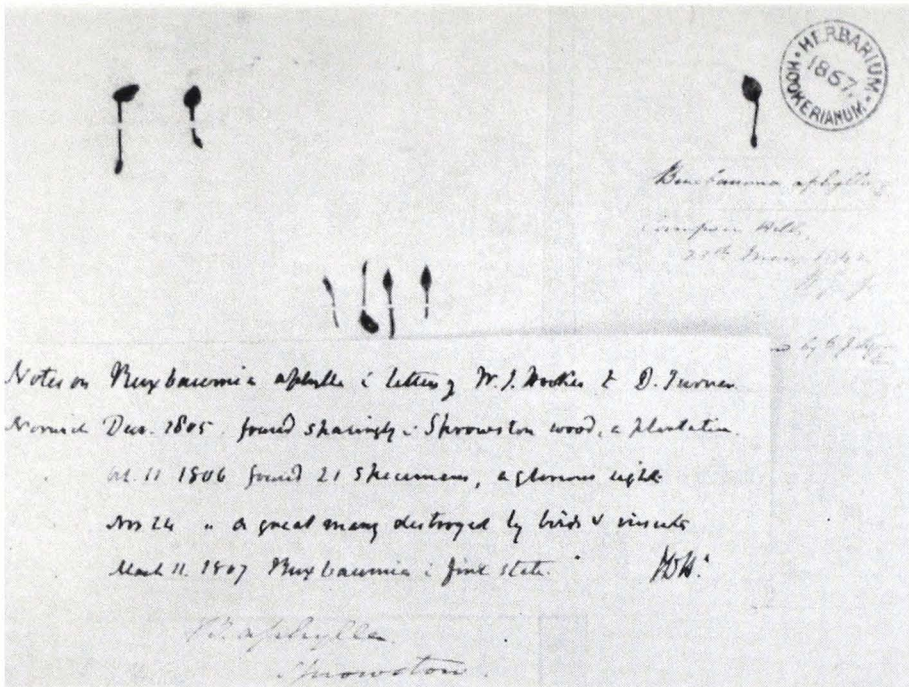 HERBARIUM HOOKERIANUM
1867.
Buxbaumia aphylla
Campsie Hills,
Notes on Buxbaumia aphylla i letters of W. J. Hooker to D. Turner
Norwich Dec. 1805. found sparingly i Sprowston wood, a plantation.
Oct. 11 1806 found 21 specimens, a glorious sight
Nov 24 " a great many destroyed by birds & insects
March 11. 1807 Buxbaumia i fine state."
B. aphylla.
Sprowston.